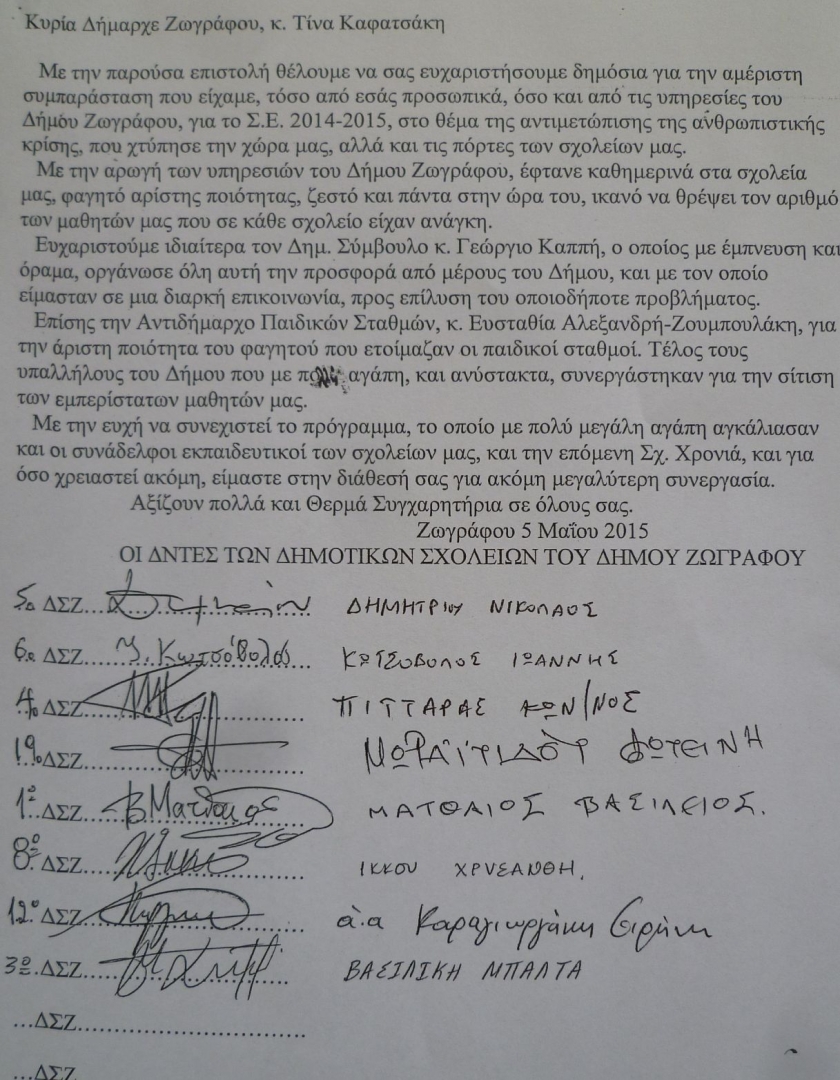 Κυρία Δήμαρχε Ζωγράφου, κ. Τίνα Καφατσάκη
Με την παρούσα επιστολή θέλουμε να σας ευχαριστήσουμε δημόσια για την αμέριστη
συμπαράσταση που είχαμε, τόσο από εσάς προσωπικά, όσο και από τις υπηρεσίες του
Δήμου Ζωγράφου, για το Σ.Ε. 2014-2015, στο θέμα της αντιμετώπισης της ανθρωπιστικής
κρίσης, που χτύπησε την χώρα μας, αλλά και τις πόρτες των σχολείων μας.
Με την αρωγή των υπηρεσιών του Δήμου Ζωγράφου, έφτανε καθημερινά στα σχολεία
μας, φαγητό αρίστης ποιότητας, ζεστό και πάντα στην ώρα του, ικανό να θρέψει τον αριθμό
των μαθητών μας που σε κάθε σχολείο είχαν ανάγκη.
Ευχαριστούμε ιδιαίτερα τον Δημ. Σύμβουλο κ. Γεώργιο Καππή, ο οποίος με έμπνευση και
όραμα, οργάνωσε όλη αυτή την προσφορά από μέρους του Δήμου, και με τον οποίο
είμασταν σε μια διαρκή επικοινωνία, προς επίλυση του οποιοδήποτε προβλήματος.
Επίσης την Αντιδήμαρχο Παιδικών Σταθμών, κ. Ευσταθία Αλεξανδρή-Ζουμπουλάκη, για
την άριστη ποιότητα του φαγητού που ετοίμαζαν οι παιδικοί σταθμοί. Τέλος τους
υπαλλήλους του Δήμου που με αγάπη, και ανύστακτα, συνεργάστηκαν για την σίτιση
των εμπερίστατων μαθητών μας.
Με την ευχή να συνεχιστεί το πρόγραμμα, το οποίο με πολύ μεγάλη αγάπη αγκάλιασαν
και οι συνάδελφοι εκπαιδευτικοί των σχολείων μας, και την επόμενη Σχ. Χρονιά, και για
όσο χρειαστεί ακόμη, είμαστε στην διάθεσή σας για ακόμη μεγαλύτερη συνεργασία.
Αξίζουν πολλά και Θερμά Συγχαρητήρια σε όλους σας.
Ζωγράφου 5 Μαΐου 2015
ΟΙ ΔΝΤΕΣ ΤΩΝ ΔΗΜΟΤΙΚΩΝ ΣΧΟΛΕΙΩΝ ΤΟΥ ΔΗΜΟΥ ΖΩΓΡΑΦΟΥ
5ο ΔΣΖ... ΔΗΜΗΤΡΙΟΥ ΝΙΚΟΛΑΟΣ
6ο ΔΣΖ... Ι. Κωτσόβολος ΚΩΤΣΟΒΟΛΟΣ ΙΩΑΝΝΗΣ
4ο ΔΣΖ... ΠΙΤΤΑΡΑΣ ΚΩΝ/ΝΟΣ
ΔΣΖ... ΜΩΡΑΪΤΙΔΟΥ ΦΩΤΕΙΝΗ
1ο ΔΣΖ... Β. Ματθαιος ΜΑΤΘΑΙΟΣ ΒΑΣΙΛΕΙΟΣ.
8ο ΔΣΖ... ΙΚΚΟΥ ΧΡΥΣΑΝΘΗ.
12ο ΔΣΖ... α.α Καραγιωργάκη Ειρήνη
3ο ΔΣΖ... ΒΑΣΙΛΙΚΗ ΜΠΑΛΤΑ
...ΔΣΖ...
...ΔΣΖ